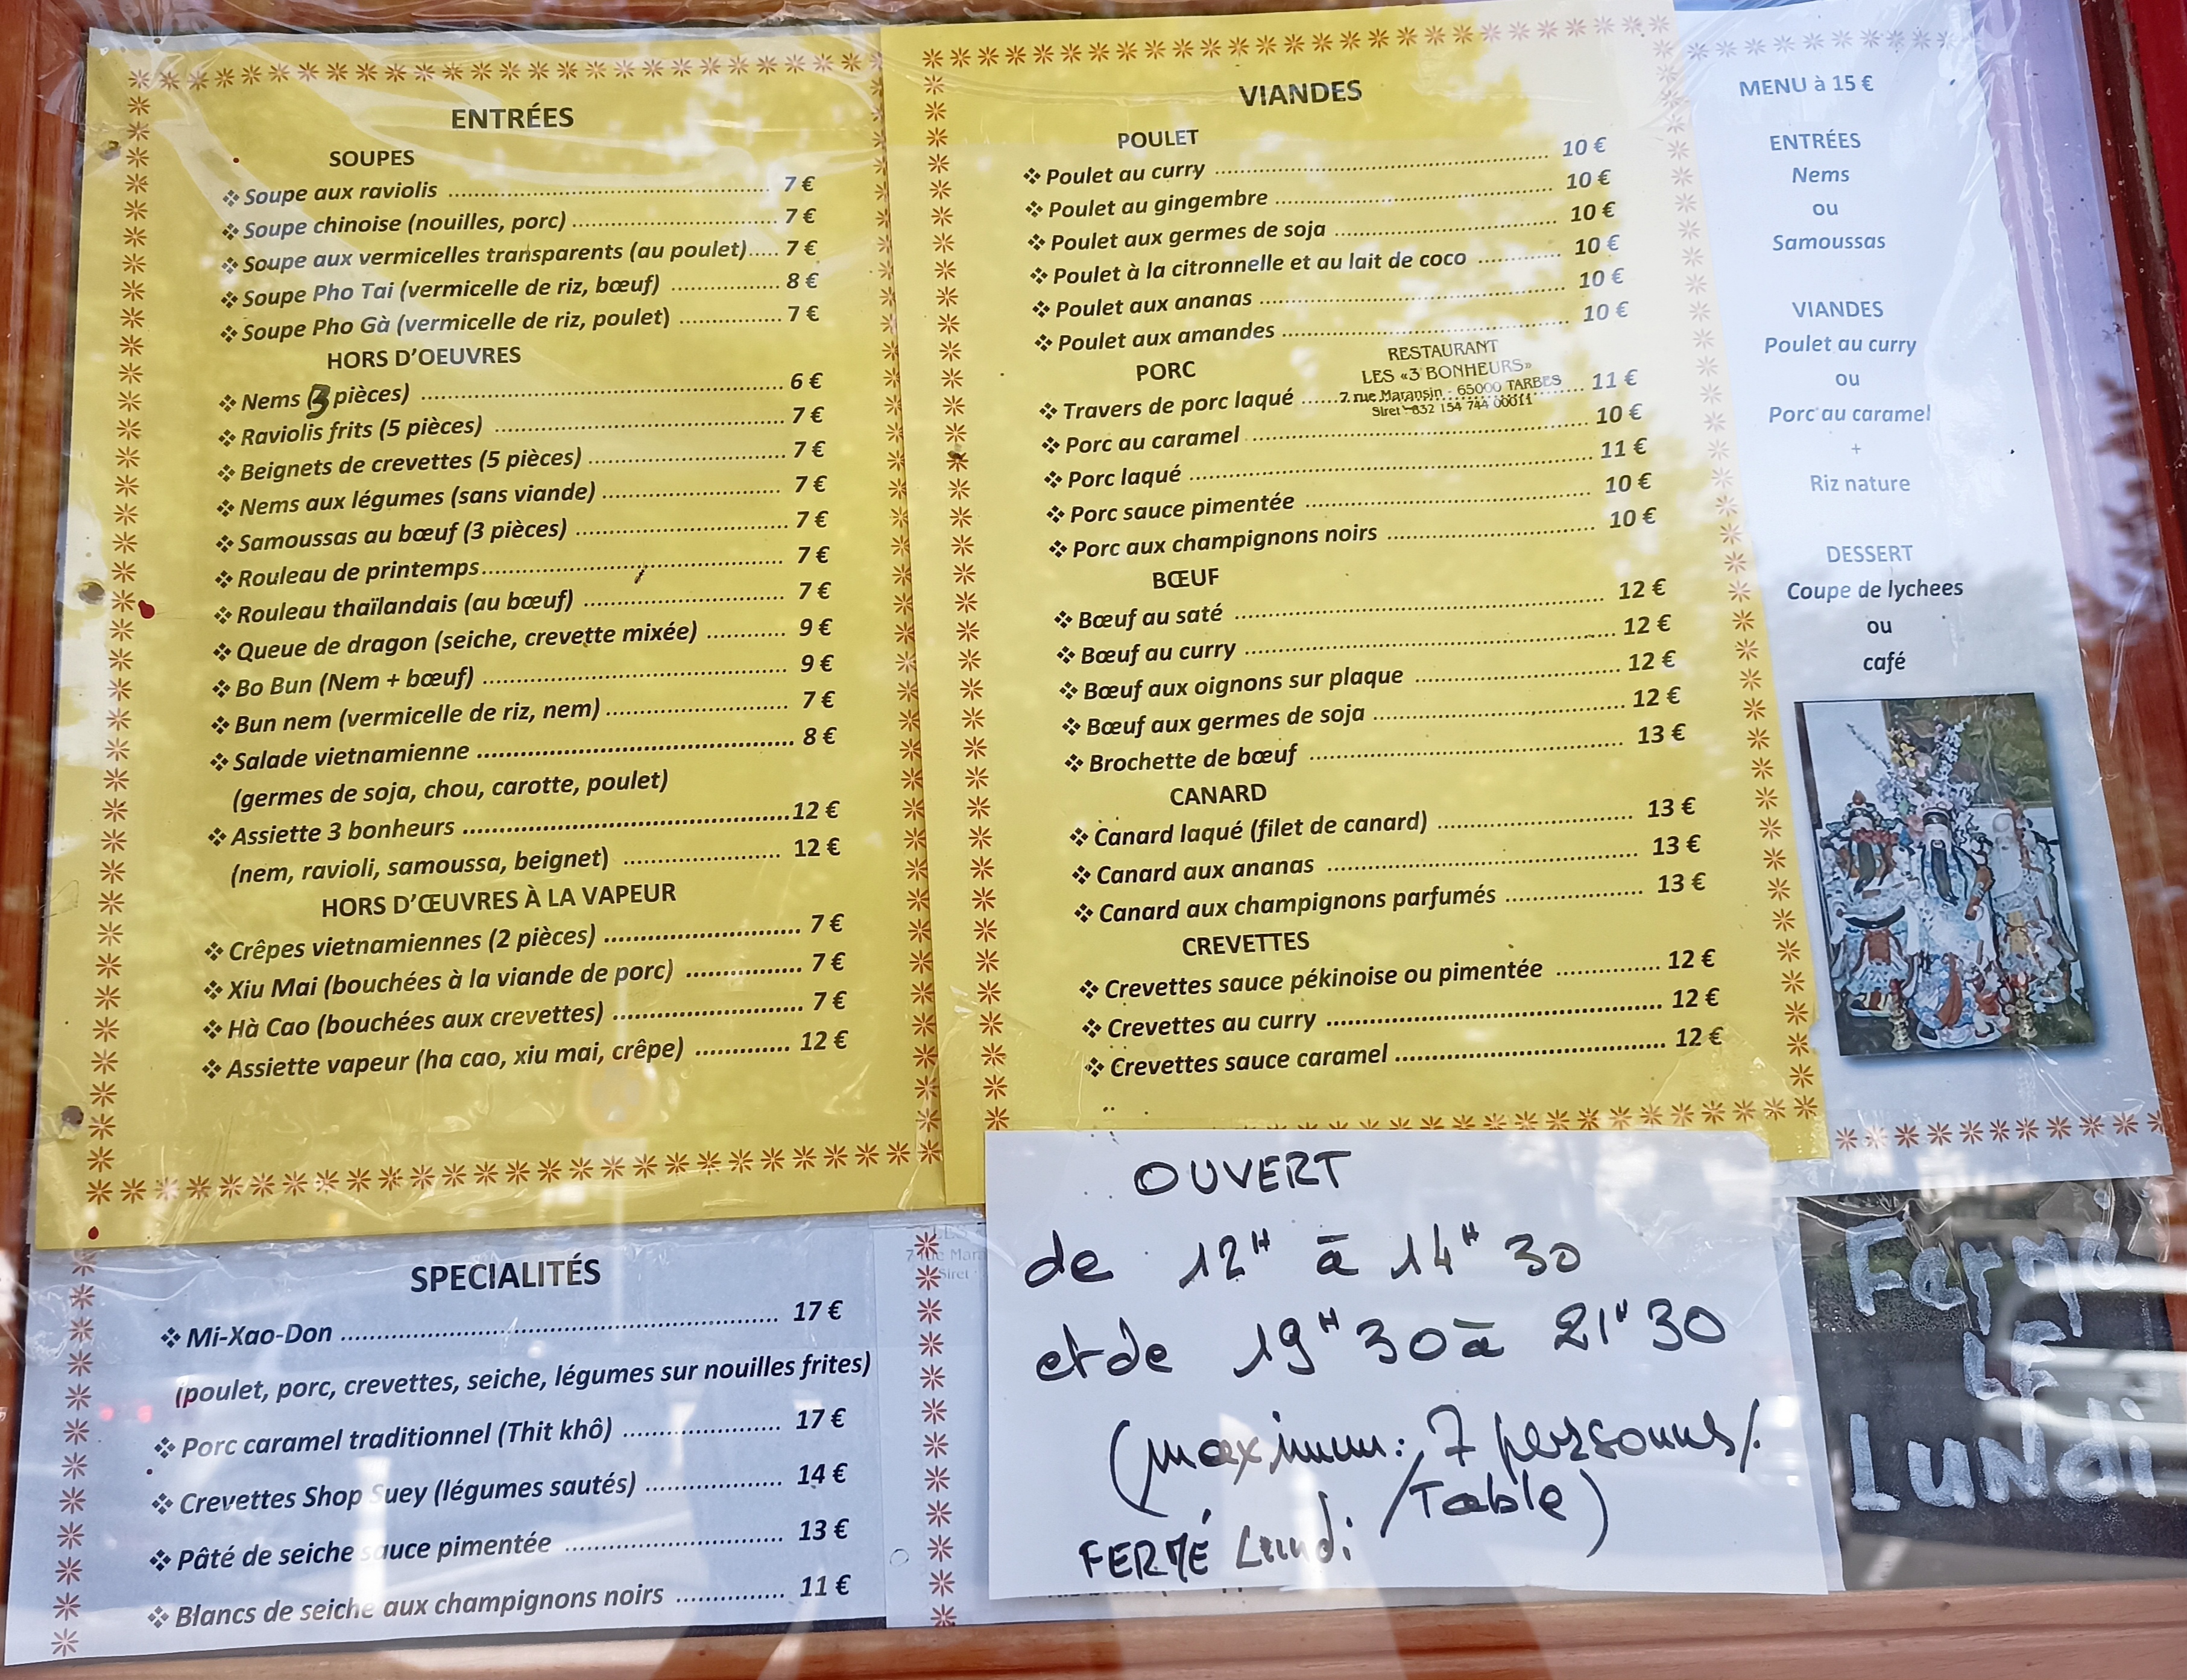 ENTRÉES
SOUPES
❖ Soupe aux raviolis ........ 7 €
❖ Soupe chinoise (nouilles, porc) ........ 7 €
❖ Soupe aux vermicelles transparents (au poulet)..... 7 €
❖ Soupe Pho Tai (vermicelle de riz, bœuf) ........ 8 €
❖ Soupe Pho Gà (vermicelle de riz, poulet) ........ 7 €
HORS D'OEUVRES
❖ Nems (3 pièces) ........ 6 €
❖ Raviolis frits (5 pièces) ........ 7 €
❖ Beignets de crevettes (5 pièces) ........ 7 €
❖ Nems aux légumes (sans viande) ........ 7 €
❖ Samoussas au bœuf (3 pièces) ........ 7 €
❖ Rouleau de printemps........ 7 €
❖ Rouleau thaïlandais (au bœuf) ........ 7 €
❖ Queue de dragon (seiche, crevette mixée) ........ 9 €
❖ Bo Bun (Nem + bœuf) ........ 9 €
❖ Bun nem (vermicelle de riz, nem) ........ 7 €
❖ Salade vietnamienne ........ 8 €
(germes de soja, chou, carotte, poulet)
❖ Assiette 3 bonheurs ........12 €
(nem, ravioli, samoussa, beignet) ........ 12 €
HORS D'ŒUVRES À LA VAPEUR
❖ Crêpes vietnamiennes (2 pièces) ........ 7 €
❖ Xiu Mai (bouchées à la viande de porc) ........ 7 €
❖ Hà Cao (bouchées aux crevettes) ........ 7 €
❖ Assiette vapeur (ha cao, xiu mai, crêpe) ........ 12 €
VIANDES
POULET
❖ Poulet au curry ........ 10 €
❖ Poulet au gingembre ........ 10 €
❖ Poulet aux germes de soja ........ 10 €
❖ Poulet à la citronnelle et au lait de coco ........ 10 €
❖ Poulet aux ananas ........ 10 €
❖ Poulet aux amandes ........ 10 €
RESTAURANT
LES «3 BONHEURS»
7, rue Maransin - 65000 TARBES
Siret 832 154 744 00011
PORC
❖ Travers de porc laqué ........ 11 €
❖ Porc au caramel ........ 10 €
❖ Porc laqué ........ 11 €
❖ Porc sauce pimentée ........ 10 €
❖ Porc aux champignons noirs ........ 10 €
BŒUF
❖ Bœuf au saté ........ 12 €
❖ Bœuf au curry ........ 12 €
❖ Bœuf aux oignons sur plaque ........ 12 €
❖ Bœuf aux germes de soja ........ 12 €
❖ Brochette de bœuf ........ 13 €
CANARD
❖ Canard laqué (filet de canard) ........ 13 €
❖ Canard aux ananas ........ 13 €
❖ Canard aux champignons parfumés ........ 13 €
CREVETTES
❖ Crevettes sauce pékinoise ou pimentée ........ 12 €
❖ Crevettes au curry ........ 12 €
❖ Crevettes sauce caramel ........ 12 €
MENU à 15 €
ENTRÉES
Nems
ou
Samoussas
VIANDES
Poulet au curry
ou
Porc au caramel
+
Riz nature
DESSERT
Coupe de lychees
ou
café
SPECIALITÉS
❖ Mi-Xao-Don ........ 17 €
(poulet, porc, crevettes, seiche, légumes sur nouilles frites)
❖ Porc caramel traditionnel (Thit khô) ........ 17 €
❖ Crevettes Shop Suey (légumes sautés) ........ 14 €
❖ Pâté de seiche sauce pimentée ........ 13 €
❖ Blancs de seiche aux champignons noirs ........ 11 €
7 rue Mara
Siret
OUVERT
de 12H à 14H 30
et de 19H 30 à 21H 30
(maximum: 7 personnes/.
/Table)
FERMÉ Lundi
Fermé
LE
Lundi